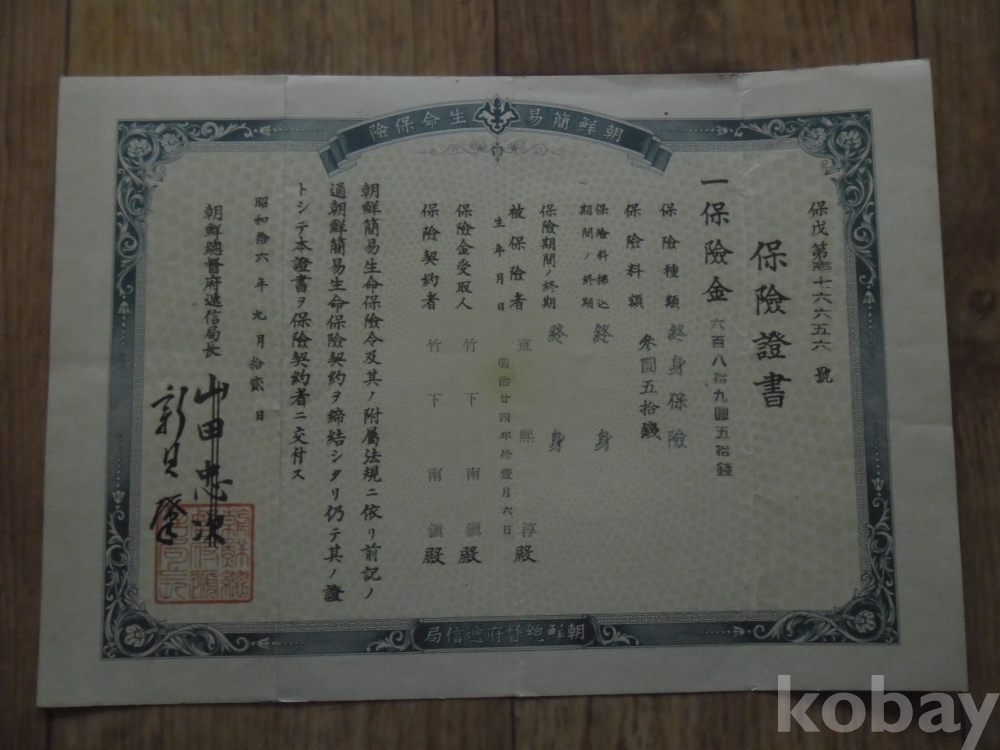 朝鮮簡易生命保險
保險證書
一保險金 六百八拾九圓五拾錢
保險種類 終身保險
保險料額 參圓五拾錢
保險料拂込期間ノ終期 終身
保險期間ノ終期 終身
被保險者 宣熙淳殿
生年月日 明治廿四年拾壹月六日
保險金受取人 竹下南鎭殿
保險契約者 竹下南鎭殿
朝鮮簡易生命保險令及其ノ附屬法規ニ依リ前記ノ
通朝鮮簡易生命保險契約ヲ締結シタリ仍テ其ノ證
トシテ本證書ヲ保險契約者ニ交付ス
昭和拾六年九月拾貳日
朝鮮總督府遞信局長 山田忠次
新貝肇
朝鮮總督府遞信局
kobay